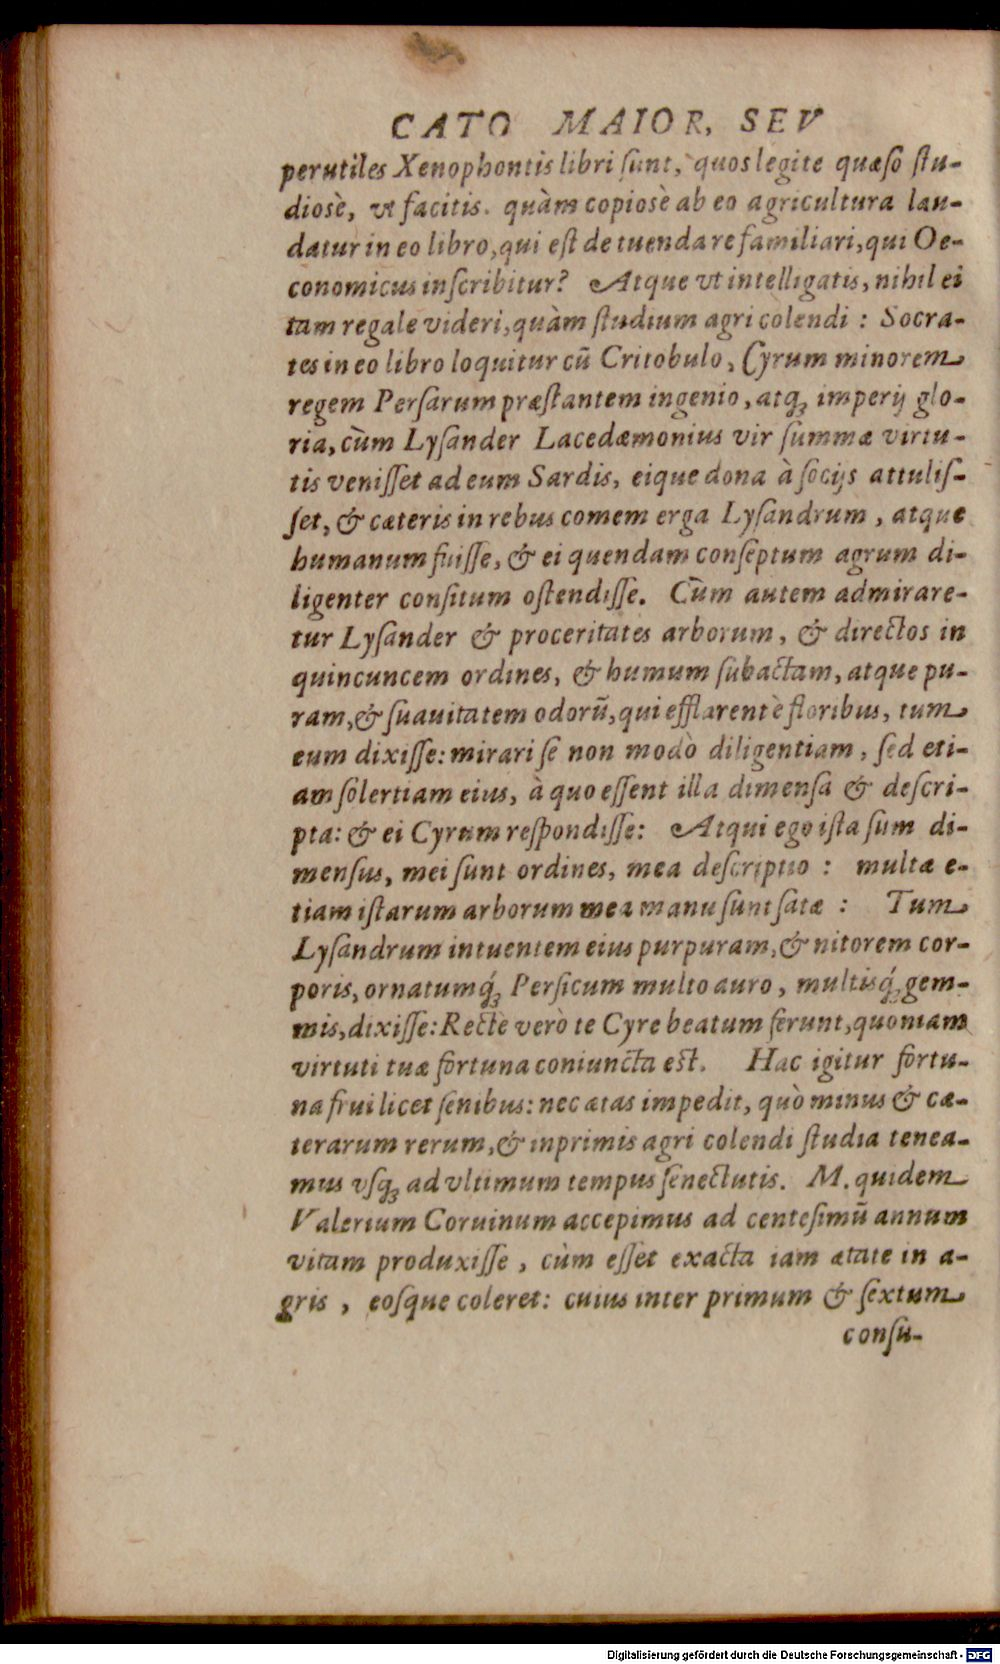 CATO MAIOR, SEV
perutiles Xenophontis libri ſunt, quos legite quæſo ſtu-
diosè, vt facitis. quàm copiosè ab eo agricultura lau-
datur in eo libro, qui eſt de tuenda re familiari, qui Oe-
conomicus inſcribitur? Atque vt intelligatis, nihil ei
tam regale videri, quàm ſtudium agri colendi : Socra-
tes in eo libro loquitur cū Critobulo, Cyrum minorem
regem Perſarum præſtantem ingenio, atq́ꝫ imperij glo-
ria, cùm Lyſander Lacedæmonius vir ſummæ virtu-
tis veniſſet ad eum Sardis, eique dona à ſocijs attuliſ-
ſet, & cæteris in rebus comem erga Lyſandrum, atque
humanum fuiſſe, & ei quendam conſeptum agrum di-
ligenter conſitum oſtendiſſe. Cùm autem admirare-
tur Lyſander & proceritates arborum, & directos in
quincuncem ordines, & humum ſubactam, atque pu-
ram, & ſuauitatem odorū, qui efflarent è floribus, tum
eum dixiſſe: mirari ſe non modò diligentiam, ſed eti-
am ſolertiam eius, à quo eſſent illa dimenſa & deſcri-
pta: & ei Cyrum reſpondiſſe: Atqui ego iſta ſum di-
menſus, mei ſunt ordines, mea deſcriptio : multæ e-
tiam iſtarum arborum mea manu ſunt ſatæ : Tum
Lyſandrum intuentem eius purpuram, & nitorem cor-
poris, ornatumq́ꝫ Perſicum multo auro, multisq́ꝫ gem-
mis, dixiſſe: Rectè verò te Cyre beatum ferunt, quoniam
virtuti tuæ fortuna coniuncta eſt. Hac igitur fortu-
na frui licet ſenibus: nec ætas impedit, quò minus & cæ-
terarum rerum, & inprimis agri colendi ſtudia tenea-
mus vſqꝫ ad vltimum tempus ſenectutis. M. quidem
Valerium Coruinum accepimus ad centeſimū annum
vitam produxiſſe, cùm eſſet exacta iam ætate in a-
gris, eoſque coleret: cuius inter primum & ſextum
conſu-
Digitalisierung gefördert durch die Deutsche Forschungsgemeinschaft - DFG